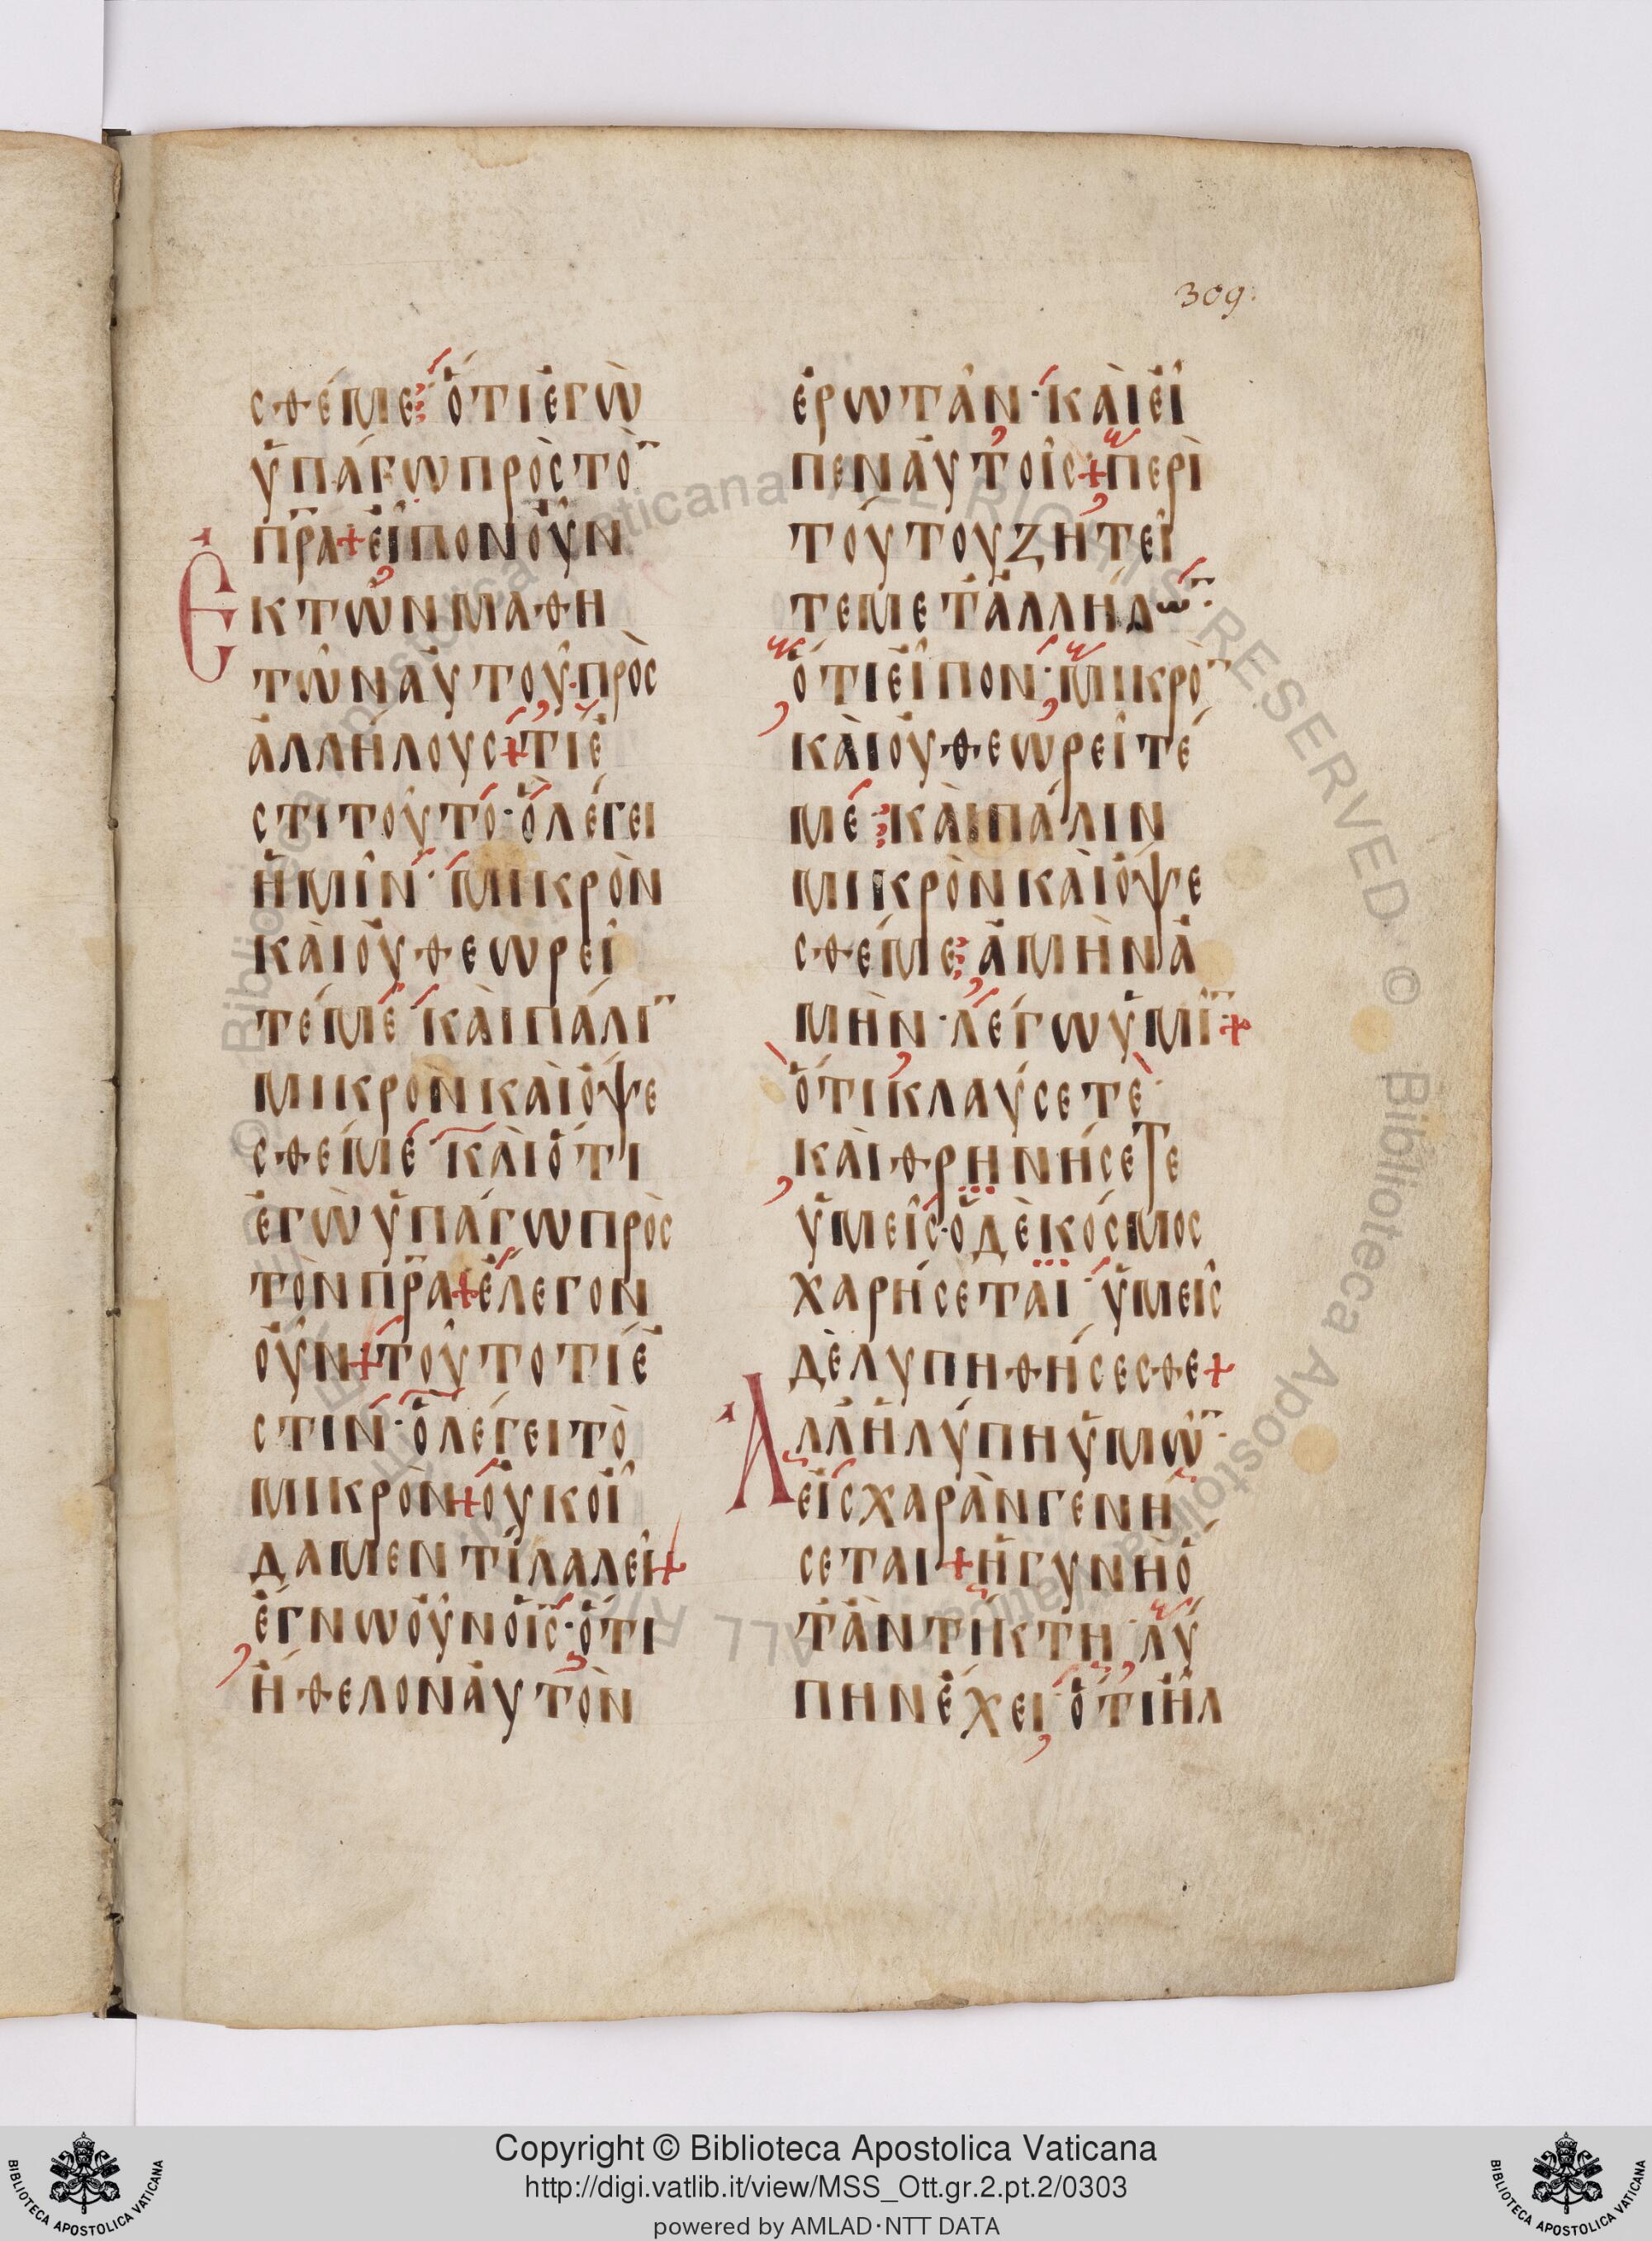 309.
σθέ με ὅτι ἐγὼ
ὑπάγω πρὸς τὸ̅
π̅ρ̅α + εἶπον οὖν
Ἐκ τῶν μαθη
τῶν αὐτοῦ· πρὸς
ἀλλήλους + τί ἐ
στι τοῦτό· ὃ λέγει
ἡμῖν· μικρὸν
καὶ οὐ θεωρεῖ
τέ μέ· καὶ πάλι̅
μικρὸν καὶ ὄψε
σθέ μέ· καὶ ὅτι
ἐγὼ ὑπάγω πρὸς
τὸν π̅ρ̅α + ἔλεγον
οὖν + τοῦτο τί ἐ
στιν· ὃ λέγει τὸ
μικρὸν + οὐκ οἴ
δαμεν τί λαλεῖ +
ἔγνω οὖν ὁ ι̅ς̅· ὅτι
ἤθελον αὐτὸν
ἐρωτᾶν· καὶ εἶ
πεν αὐτοῖς + περὶ
τούτου ζητεῖ
τε μετ' ἀλλήλω̅·
ὅτι εἶπον· μικρὸ̅
καὶ οὐ θεωρεῖτέ
μέ· καὶ πάλιν
μικρὸν καὶ ὄψε
σθέ με· ἀμὴν ἀ
μὴν· λέγω ὑμῖ̅ +
ὅτι κλαύσετὲ·
καὶ θρηνήσετε
ὑμεῖς· ὁ δὲ κόσμος
χαρήσεται· ὑμεῖς
δὲ λυπηθήσεσθε +
Ἀλλ' ἡ λύπη ὑμῶ̅·
εἰς χαρὰν γενή
σεται + ἡ γυνὴ ὅ
τ' ἂν τίκτη· λύ
πην ἔχει· ὅτι ἦλ
Copyright © Biblioteca Apostolica Vaticana
http://digi.vatlib.it/view/MSS_Ott.gr.2.pt.2/0303
powered by AMLAD·NTT DATA
BIBLIOTECA APOSTOLICA VATICANA
BIBLIOTECA APOSTOLICA VATICANA